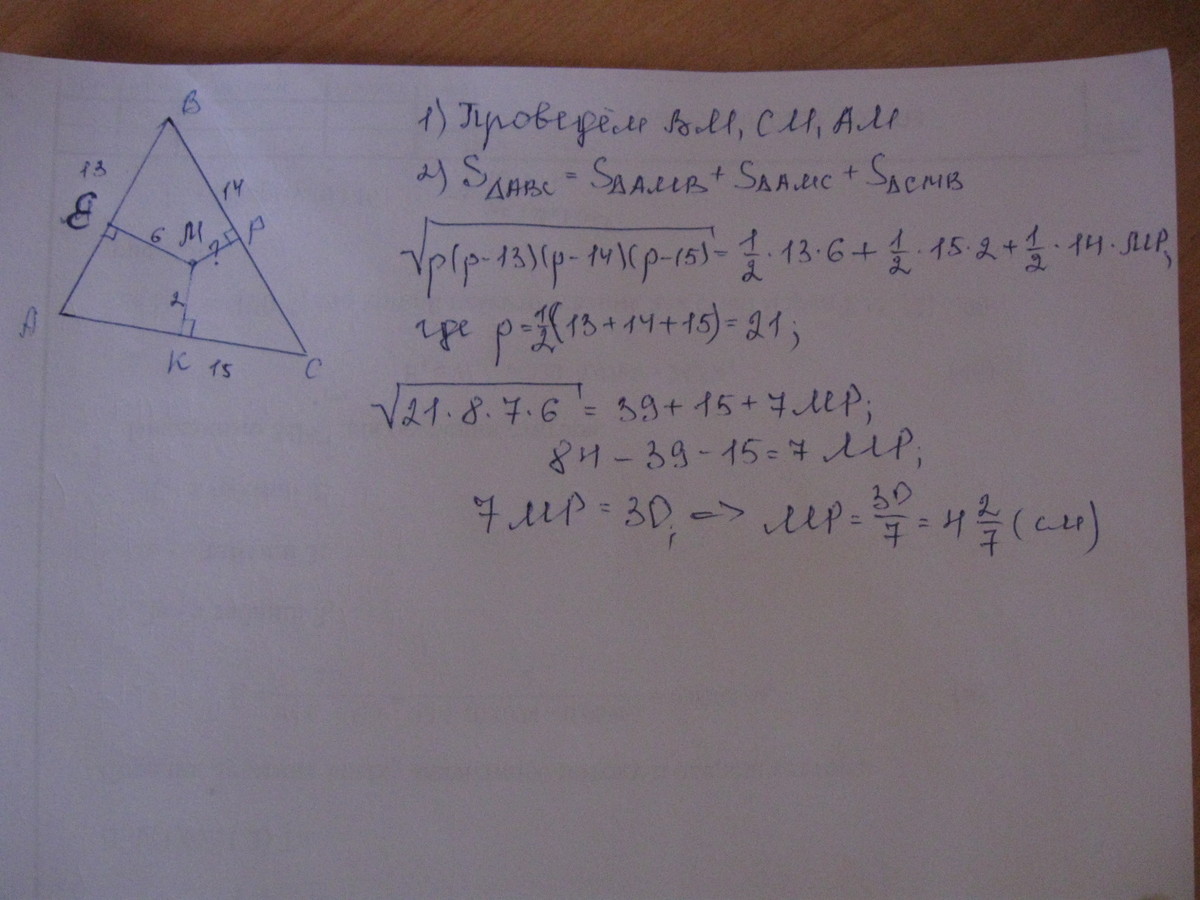 B
13
14
E
6
M
P
?
2
A
K
15
C
1) Проведём BM, CM, AM
2) S△ABC = S△AMB + S△AMC + S△CMB
√p(p-13)(p-14)(p-15) = 1/2 · 13 · 6 + 1/2 · 15 · 2 + 1/2 · 14 · MP,
где p = 1/2(13+14+15) = 21;
√21·8·7·6 = 39 + 15 + 7MP;
84 - 39 - 15 = 7 MP;
7MP = 30, => MP = 30/7 = 4 2/7 (см)